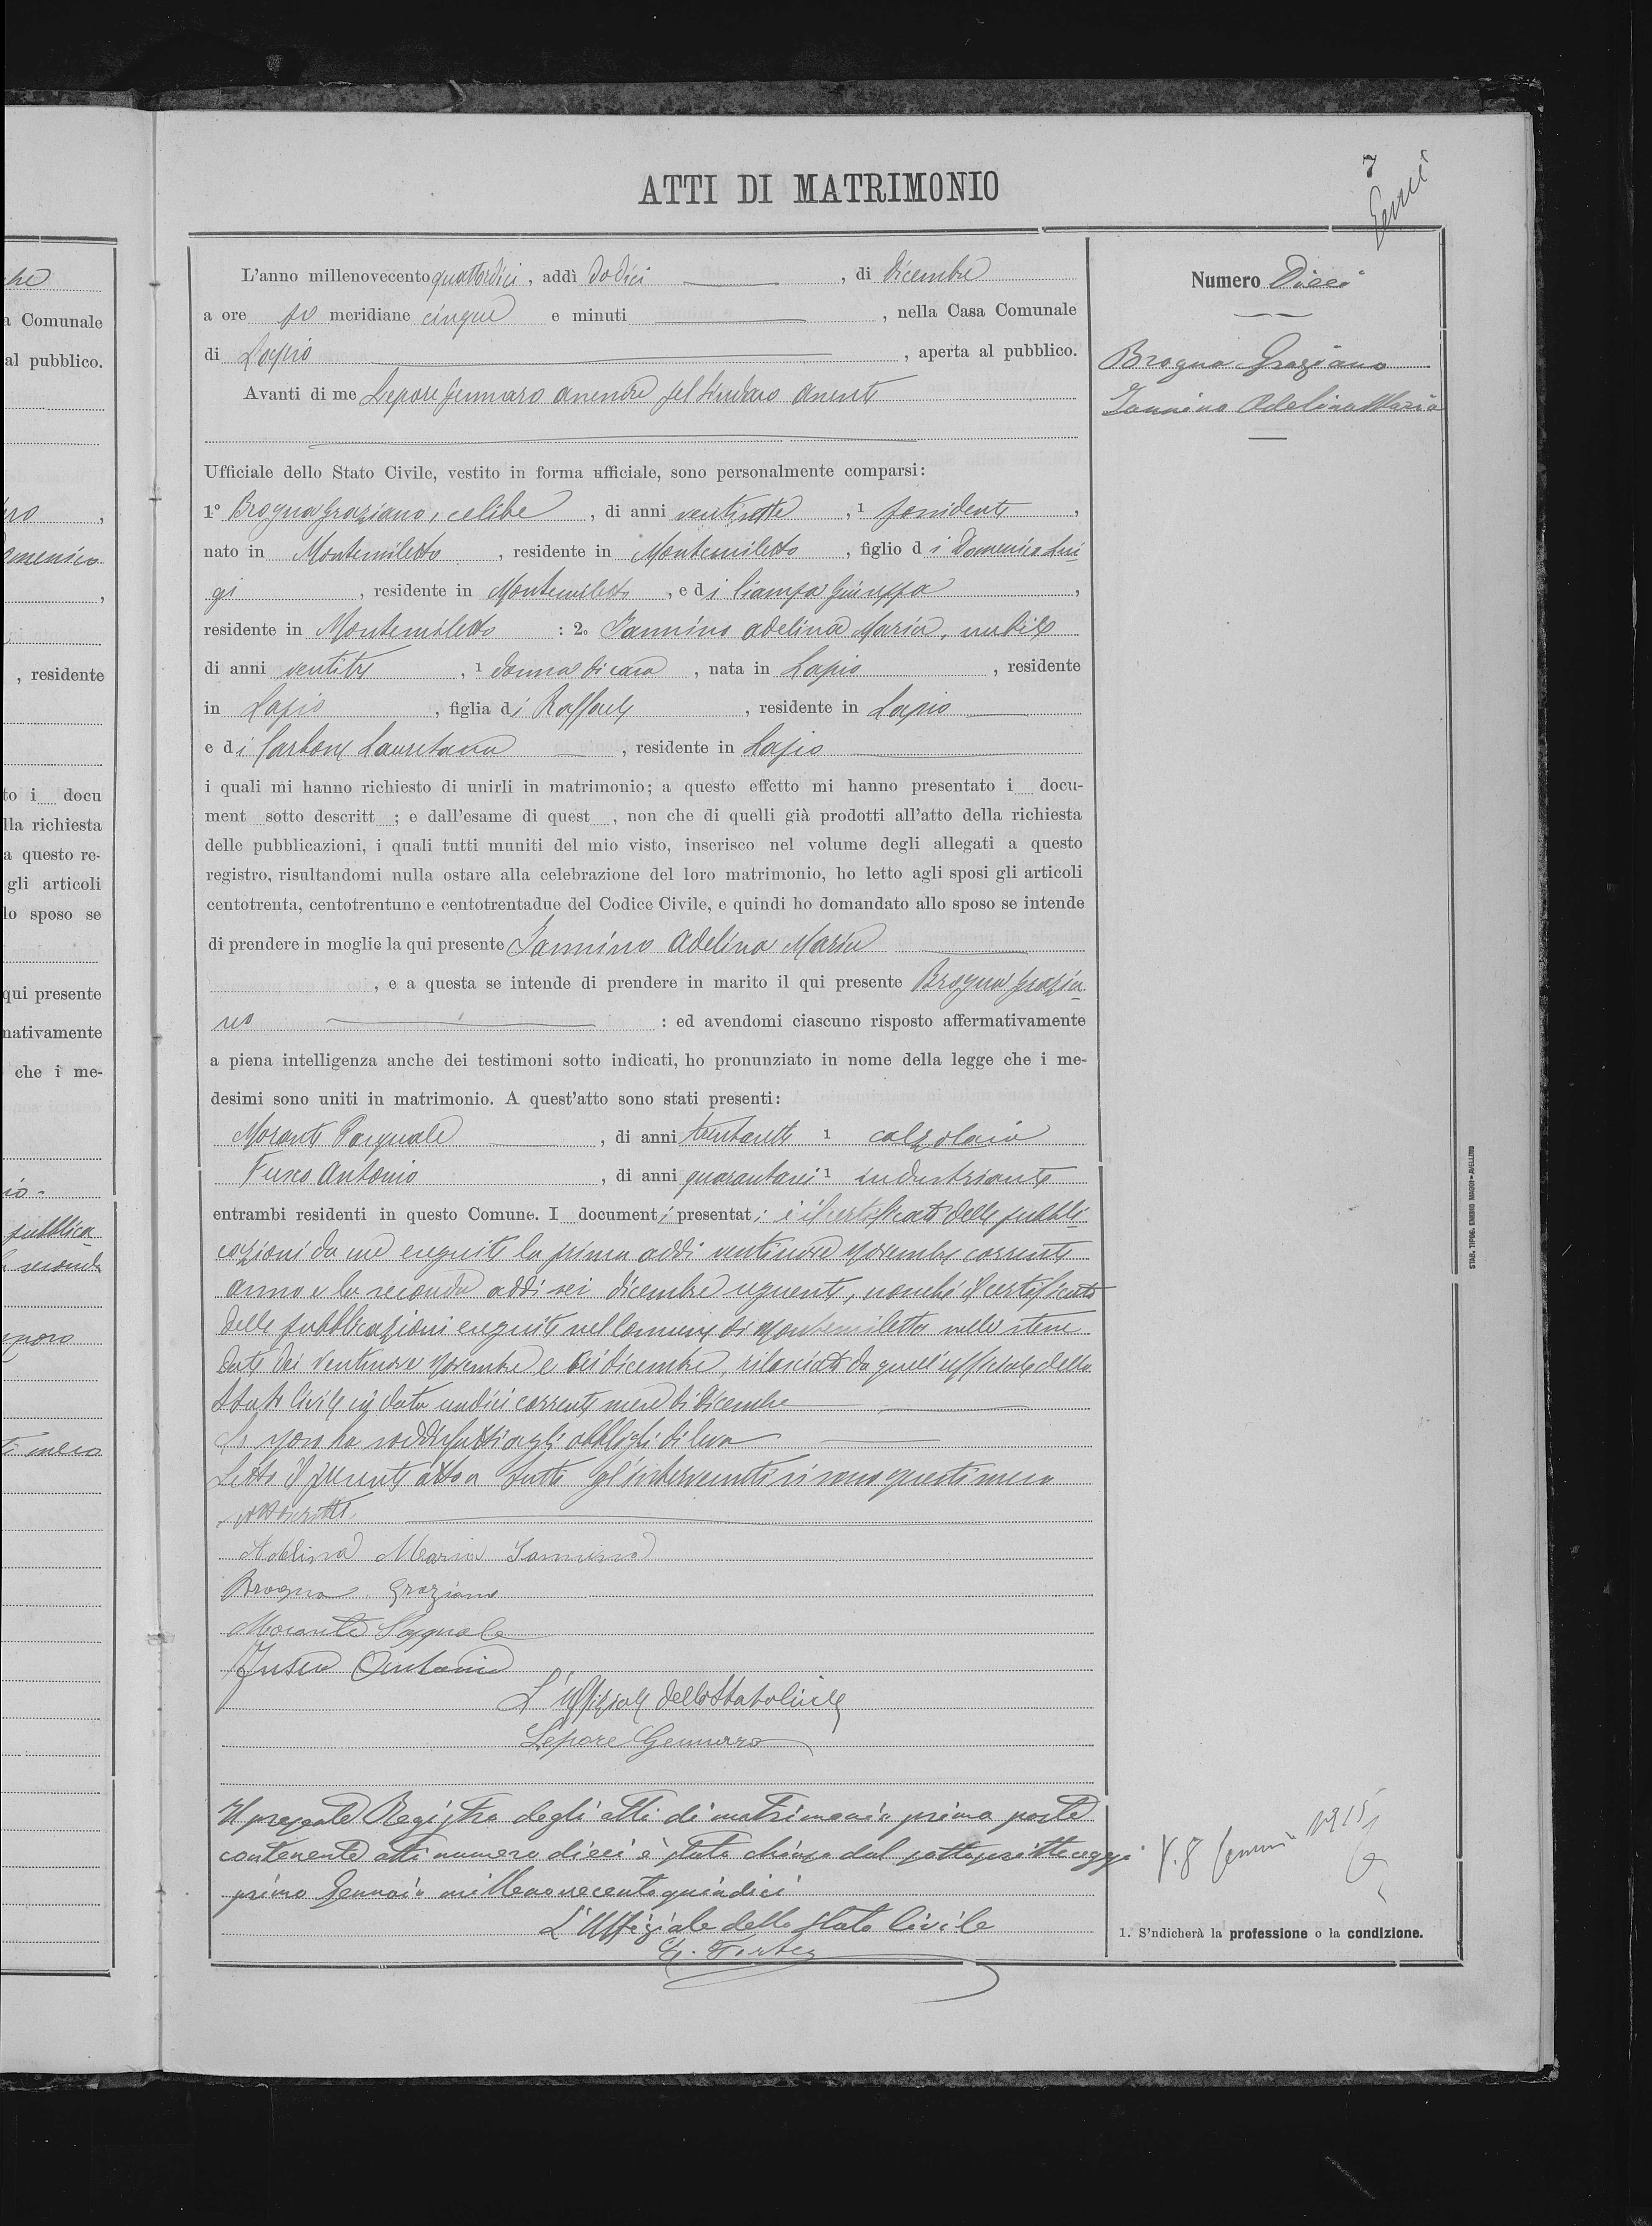 he
a Comunale
al pubblico.
omenico
, residente
to i docu
lla richiesta
a questo re-
gli articoli
lo sposo se
qui presente
nativamente
che i me-
pubblica
7
ATTI DI MATRIMONIO
L'anno millenovecento quattordici, addì dodici, di dicembre
a ore po meridiane cinque e minuti , nella Casa Comunale
di Lapio , aperta al pubblico.
Avanti di me Lepore Gennaro assessore pel Sindaco assente
Ufficiale dello Stato Civile, vestito in forma ufficiale, sono personalmente comparsi:
1° Brogna Graziano, celibe, di anni ventisette, 1 possidente,
nato in Montemiletto, residente in Montemiletto, figlio di Domenico Lui-
gi, residente in Montemiletto, e di Ciampa Giuseppa,
residente in Montemiletto : 2o Iannino Adelina Maria, nubile
di anni ventitre, 1 donna di casa, nata in Lapio, residente
in Lapio, figlia di Raffaele, residente in Lapio
e di Carbone Lauretana, residente in Lapio
i quali mi hanno richiesto di unirli in matrimonio; a questo effetto mi hanno presentato i docu-
ment sotto descritt ; e dall'esame di quest , non che di quelli già prodotti all'atto della richiesta
delle pubblicazioni, i quali tutti muniti del mio visto, inserisco nel volume degli allegati a questo
registro, risultandomi nulla ostare alla celebrazione del loro matrimonio, ho letto agli sposi gli articoli
centotrenta, centotrentuno e centotrentadue del Codice Civile, e quindi ho domandato allo sposo se intende
di prendere in moglie la qui presente Iannino Adelina Maria
, e a questa se intende di prendere in marito il qui presente Brogna Grazia-
no : ed avendomi ciascuno risposto affermativamente
a piena intelligenza anche dei testimoni sotto indicati, ho pronunziato in nome della legge che i me-
desimi sono uniti in matrimonio. A quest'atto sono stati presenti:
Morante Pasquale, di anni trentasette 1 calzolaio
Fusco Antonio, di anni quarantasei 1 industriante
entrambi residenti in questo Comune. I documenti presentati: è il certificato delle pubbli-
cazioni da me eseguite la prima addì ventinove Novembre corrente
anno e la seconda addì sei dicembre seguente, nonché il certificato
delle pubblicazioni eseguite nel Comune di Montemiletto nelle stesse
date dei ventinove Novembre e sei dicembre, rilasciato da quell'ufficiale dello
Stato Civile in data undici corrente mese di dicembre
Lo sposo ha soddisfatto agli obblighi di leva
Letto il presente atto a tutti gl'intervenuti si sono questi meco
sottoscritti.
Adelina Maria Iannino
Brogna Graziano
Morante Pasquale
Fusco Antonio
L'Uffiziale dello Stato Civile
Lepore Gennaro
Il presente Registro degli atti di matrimonio prima parte
contenente atti numero dieci è stato chiuso dal sottoscritto oggi
primo Gennaio millenovecentoquindici
L'Uffiziale dello Stato Civile
Numero Dieci
Brogna Graziano
Iannino Adelina Maria
V. 8 Gennaio 1915
1. S'ndicherà la professione o la condizione.
STAB. TIPOG. EMERIO MAGGI - AVELLINO